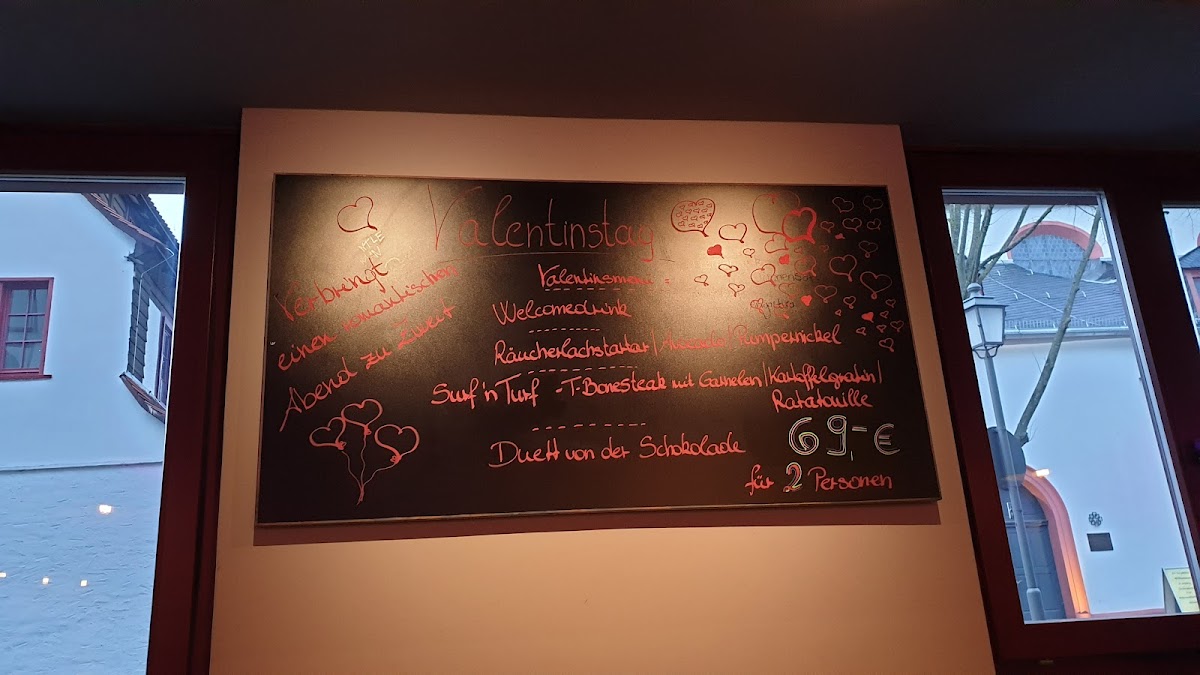 Valentinstag
Verbringt
einen romantischen
Abend zu Zweit
Valentinsmenü
Welcomedrink
Räucherlachstartar / Avocado / Pumpernickel
Surf'n Turf - T-Bonesteak mit Garnelen / Kartoffelgratin /
Ratatouille
Duett von der Schokolade
69,-€
für 2 Personen